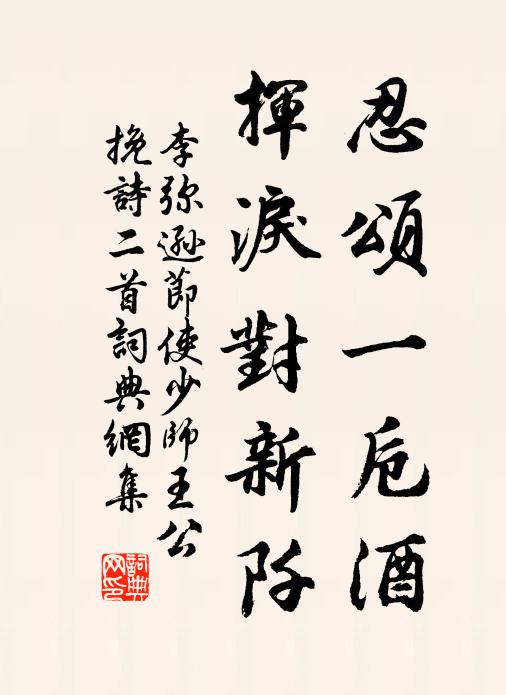 忍頌一卮酒
揮淚對新阡
李弥遜節使少師王公
挽詩二首詞典網集
詞典
网印